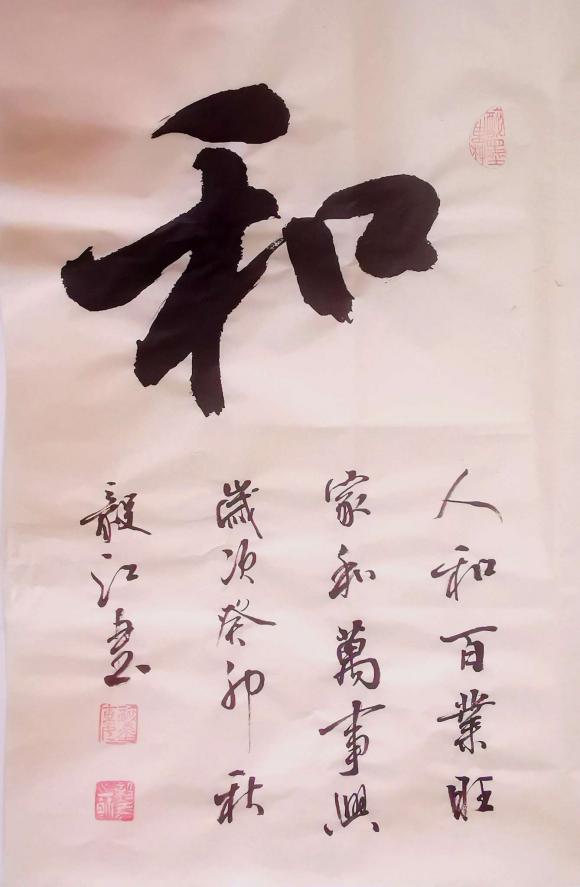 和
人和百業旺
家和萬事興
歲次癸卯秋
毅江書